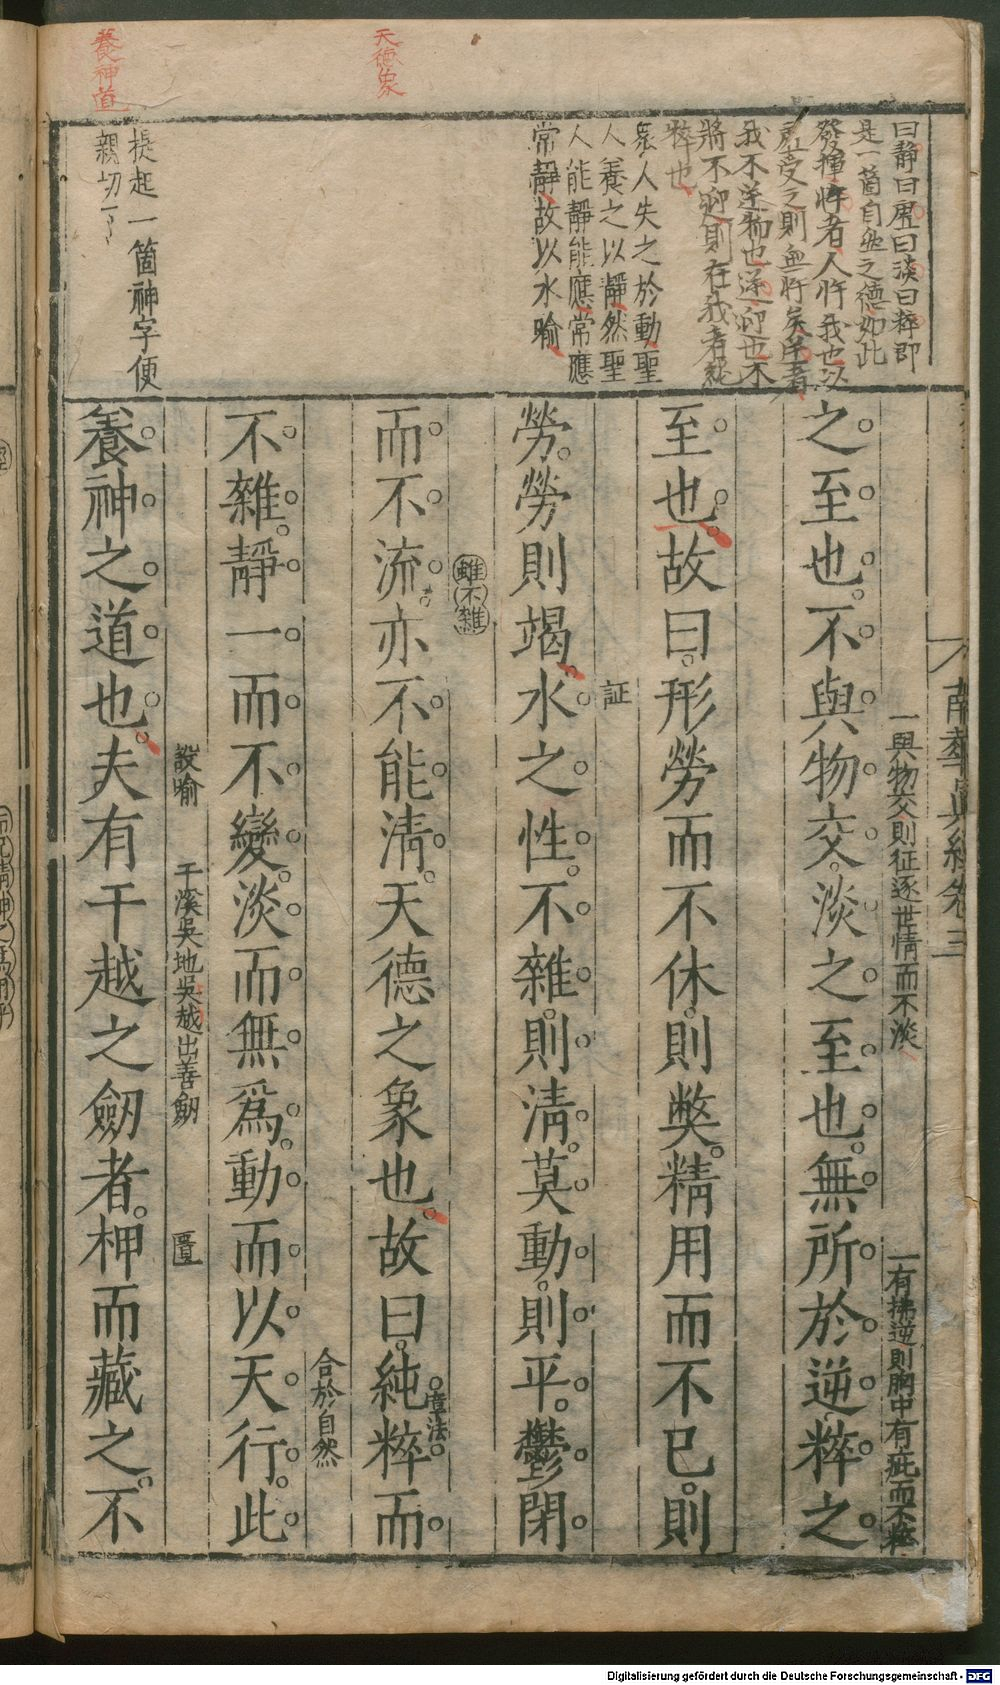 天德象
養神道
曰靜曰虛曰淡曰粹即
是一箇自然之德如此
發揮忤者人忤我也以
虛受之則無忤矣逆者
我不逆物也逆迎也不
將不迎則在我者純
粹也
衆人失之於動聖
人養之以靜然聖
人能靜能應常應
常靜故以水喻
提起一箇神字便
親切了
南華眞經卷三
一與物交則征逐世情而不淡
一有拂逆則胸中有疵而不粹
之至也不與物交淡之至也無所於逆粹之
至也故曰形勞而不休則弊精用而不已則
勞勞則竭水之性不雜則清莫動則平鬱閉
証
雖不雜
而不流亦不能清天德之象也故曰純粹而
章法
合於自然
不雜靜一而不變淡而無爲動而以天行此
設喻
干溪吳地吳越出善劒
匱
養神之道也夫有干越之劒者柙而藏之不
Digitalisierung gefördert durch die Deutsche Forschungsgemeinschaft - DFG